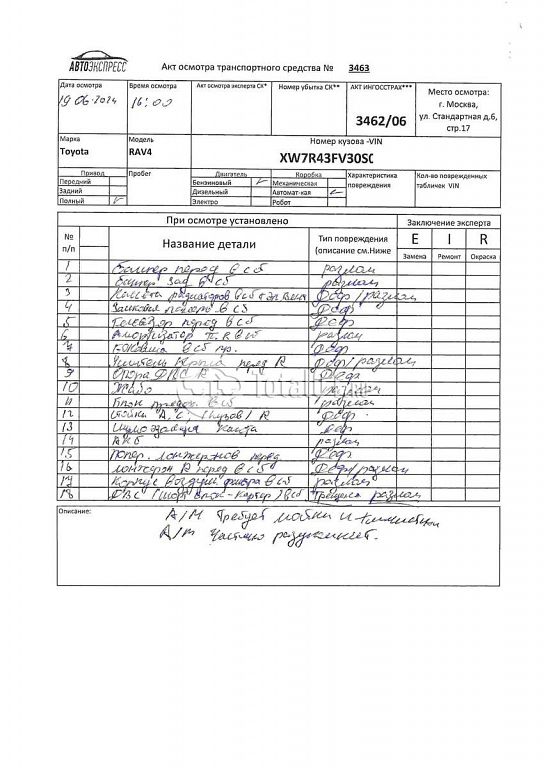 АВТОЭКСПРЕСС
Акт осмотра транспортного средства № 3463
Дата осмотра
19.06.2024
Время осмотра
16:00
Акт осмотра эксперта СК*
Номер убытка СК**
АКТ ИНГОССТРАХ***
3462/06
Место осмотра:
г. Москва,
ул. Стандартная д.6,
стр.17
Марка
Toyota
Модель
RAV4
Номер кузова -VIN
XW7R43FV30S
Привод
Передний
Задний
Полный
Пробег
Двигатель
Бензиновый
Дизельный
Электро
Коробка
Механическая
Автомат-кая
Робот
Характеристика
повреждения
Кол-во поврежденных
табличек VIN
При осмотре установлено
Заключение эксперта
№
п/п
Название детали
Тип повреждения
(описание см.Ниже
E I R
Замена Ремонт Окраска
1 Бампер перед в сб разлом
2 Бампер зад в сб разлом
3 Кассета радиаторов в сб деф/разлом
4 Деф
5 Телевизор перед в сб Деф
6 Амортизатор п. R в сб разлом
7 в сб пр. Деф
8 Усилитель крыла перед R Деф/разлом
9 Опора ДВС R Деф
10 разлом
11 Блок предох. в сб разлом
12 Стойка А, С, (кузов) R Деф
13 Шумоизоляция капота Деф
14 АКБ разлом
15 Попер. лонжеронов перед Деф
16 Лонжерон R перед в сб Деф/разлом
17 Корпус воздуш фильтра в сб разлом
18 ДВС (Шорт Блок-Картер) в сб Трещина разлом
Totall
Описание:
А/М Требует мойки и
А/М Частично разукомплект.